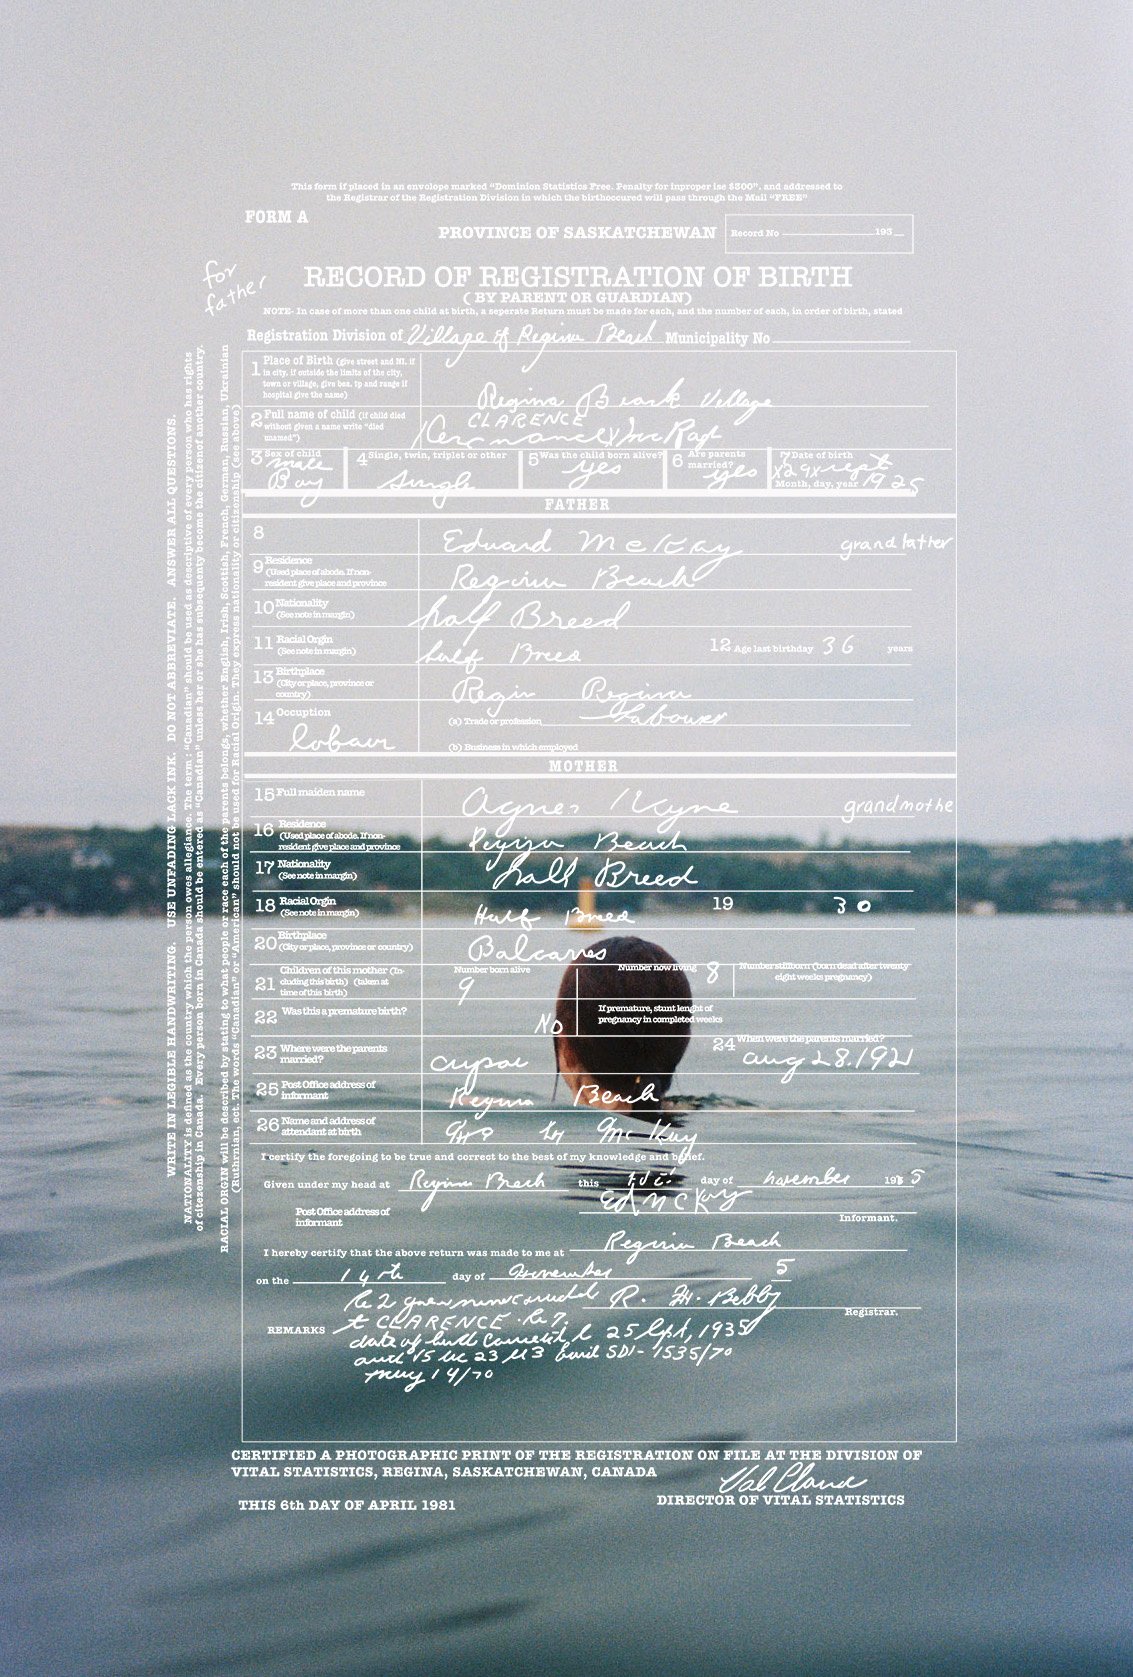 This form if placed in an envolope marked "Dominion Statistics Free. Penalty for inproper ise $300", and addressed to
the Registrar of the Registration Division in which the birthoccured will pass through the Mail "FREE"
FORM A
PROVINCE OF SASKATCHEWAN
Record No 193
for
father
RECORD OF REGISTRATION OF BIRTH
( BY PARENT OR GUARDIAN)
NOTE- In case of more than one child at birth, a seperate Return must be made for each, and the number of each, in order of birth, stated
Registration Division of Village of Regina Beach Municipality No
WRITE IN LEGIBLE HANDWRITING. USE UNFADING LACK INK. DO NOT ABBREVIATE. ANSWER ALL QUESTIONS.
NATIONALITY is defined as the country which the person owes allegiance. The term : "Canadian" should be used as descriptive of every person who has rights
of citezenship in Canada. Every person born in Canada should be entered as "Canadian" unless her or she has subsequenty become the citizenof another country.
RACIAL ORGIN will be described by stating to what people or race each of the parents belongs, whether English, Irish, Scottish, French, German, Russian, Ukrainian
(Ruthrnian, ect. The words "Canadian" or "American" should not be used for Racial Origin. They express nationality or citizenship (see above)
1 Place of Birth (give street and NI. if
in city, if outside the limits of the city,
town or village, give bea. tp and range if
hospital give the name)
Regina Beach Village
2 Full name of child (if child died
without given a name write "died
unamed")
CLARENCE
3 Sex of child
male
Boy
4 Single, twin, triplet or other
Single
5 Was the child born alive?
yes
6 Are parents
married?
yes
7 Date of birth
x29x sept
Month, day, year 1925
FATHER
8 Eduard McKay grandfather
9 Residence
(Used place of abode. If non-
resident give place and province
Regina Beach
10 Nationality
(See note in margin)
half Breed
11 Racial Orgin
(See note in margin)
half Breed
12 Age last birthday 36 years
13 Birthplace
(City or place, province or
country)
Regin Regina
14 Occuption
(a) Trade or profession Labourer
(b) Business in which employed
MOTHER
15 Full maiden name
Agnes grandmothe
16 Residence
(Used place of abode. If non-
resident give place and province
Regina Beach
17 Nationality
(See note in margin)
half Breed
18 Racial Orgin
(See note in margin)
Half Breed
19 30
20 Birthplace
(City or place, province or country)
Balcarres
21 Children of this mother (In-
cluding this birth) (taken at
time of this birth)
Number born alive
9
Number now living 8
Number stillborn (born dead after twenty
eight weeks pregnancy)
22 Was this a premature birth?
No
If premature, stunt lenght of
pregnancy in completed weeks
23 Where were the parents
married?
24 When were the parents married?
aug 28.1921
25 Post Office address of
informant
Regina Beach
26 Name and address of
attendant at birth
McKay
I certify the foregoing to be true and correct to the best of my knowledge and belief.
Given under my head at Regina Beach this day of november 193 5
Ed McKay
Post Office address of
informant
Informant.
I hereby certify that the above return was made to me at Regina Beach
on the 14th day of November 5
Registrar.
REMARKS
CLARENCE Re 7.
date of 25 Sept, 1935
SDI- 1535/70
may 14/70
CERTIFIED A PHOTOGRAPHIC PRINT OF THE REGISTRATION ON FILE AT THE DIVISION OF
VITAL STATISTICS, REGINA, SASKATCHEWAN, CANADA
THIS 6th DAY OF APRIL 1981
DIRECTOR OF VITAL STATISTICS